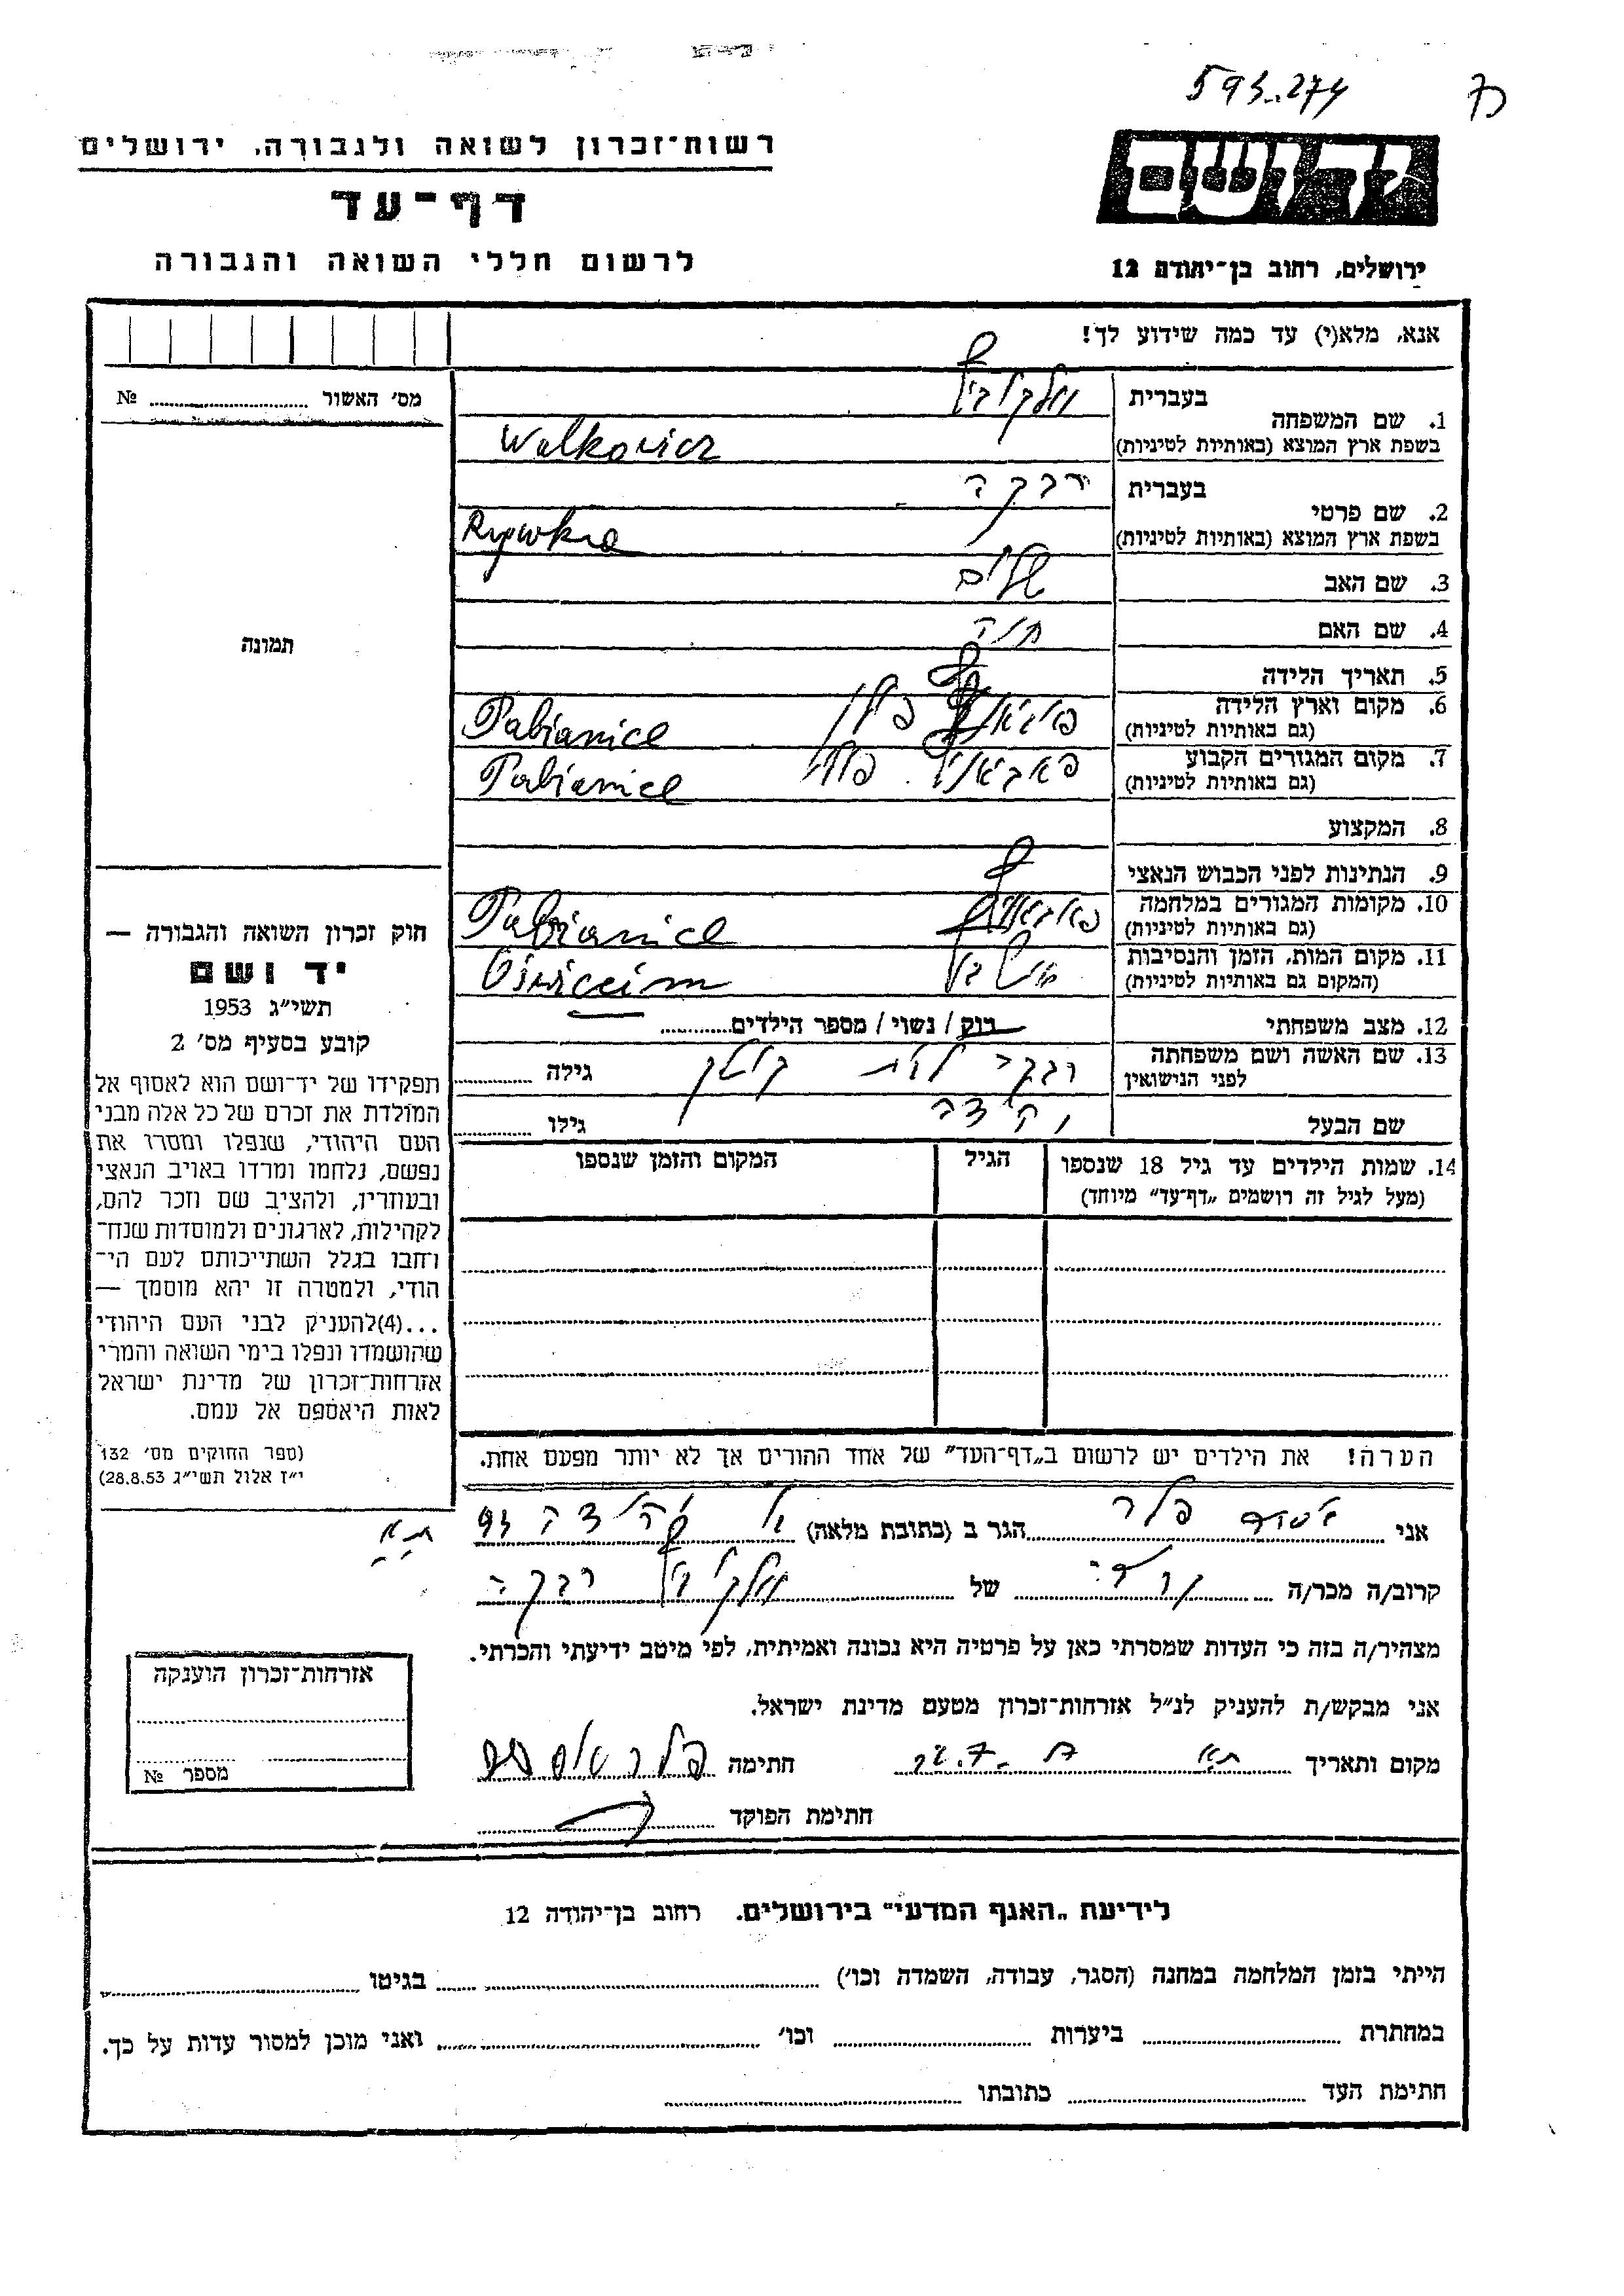 593.274
רשות־זכרון לשואה ולגבורה, ירושלים
דף־עד
לרשום חללי השואה והגבורה
יד ושם
ירושלים, רחוב בן־יהודה 12
אנא, מלא(י) עד כמה שידוע לך!
מס׳ האשור № 
תמונה
1. שם המשפחה
בעברית וולקוביץ
בשפת ארץ המוצא (באותיות לטיניות) Walkovicz
2. שם פרטי
בעברית רבקה
בשפת ארץ המוצא (באותיות לטיניות) Rywka
3. שם האב
4. שם האם חיה
5. תאריך הלידה
6. מקום וארץ הלידה פולין Pabianice
(גם באותיות לטיניות)
7. מקום המגורים הקבוע Pabianice
(גם באותיות לטיניות)
8. המקצוע
9. הנתינות לפני הכבוש הנאצי
10. מקומות המגורים במלחמה Pabianice
(גם באותיות לטיניות)
11. מקום המות, הזמן והנסיבות
(המקום גם באותיות לטיניות)
12. מצב משפחתי רוק / נשוי / מספר הילדים
13. שם האשה ושם משפחתה
לפני הנישואין רבקה גילה
שם הבעל גילו
14. שמות הילדים עד גיל 18 שנספו
(מעל לגיל זה רושמים „דף־עד״ מיוחד)
הגיל
המקום והזמן שנספו
חוק זכרון השואה והגבורה —
יד ושם
תשי״ג 1953
קובע בסעיף מס׳ 2
תפקידו של יד־ושם הוא לאסוף אל
המולדת את זכרם של כל אלה מבני
העם היהודי, שנפלו ומסרו את
נפשם, נלחמו ומרדו באויב הנאצי
ובעוזריו, ולהציב שם וזכר להם,
לקהילות, לארגונים ולמוסדות שנח־
רחבו בגלל השתייכותם לעם הי־
הודי, ולמטרה זו יהא מוסמך —
...(4)להעניק לבני העם היהודי
שהושמדו ונפלו בימי השואה והמרי
אזרחות־זכרון של מדינת ישראל
לאות היאספם אל עמם.
(ספר החוקים מס׳ 132
י״ז אלול תשי״ג 28.8.53)
הערה! את הילדים יש לרשום ב„דף־העד״ של אחד ההורים אך לא יותר מפעם אחת.
אני הגר ב (כתובת מלאה) ת״א
קרוב/ה מכר/ה של וולקוביץ רבקה
מצהיר/ה בזה כי העדות שמסרתי כאן על פרטיה היא נכונה ואמיתית, לפי מיטב ידיעתי והכרתי.
אני מבקש/ת להעניק לנ״ל אזרחות־זכרון מטעם מדינת ישראל.
מקום ותאריך ת״א חתימה
חתימת הפוקד
אזרחות־זכרון הוענקה
מספר №
לידיעת „האגף המדעי״ בירושלים. רחוב בן־יהודה 12
הייתי בזמן המלחמה במחנה (הסגר, עבודה, השמדה וכו׳) בגיטו
במחתרת ביערות וכו׳ ואני מוכן למסור עדות על כך.
חתימת העד כתובתו